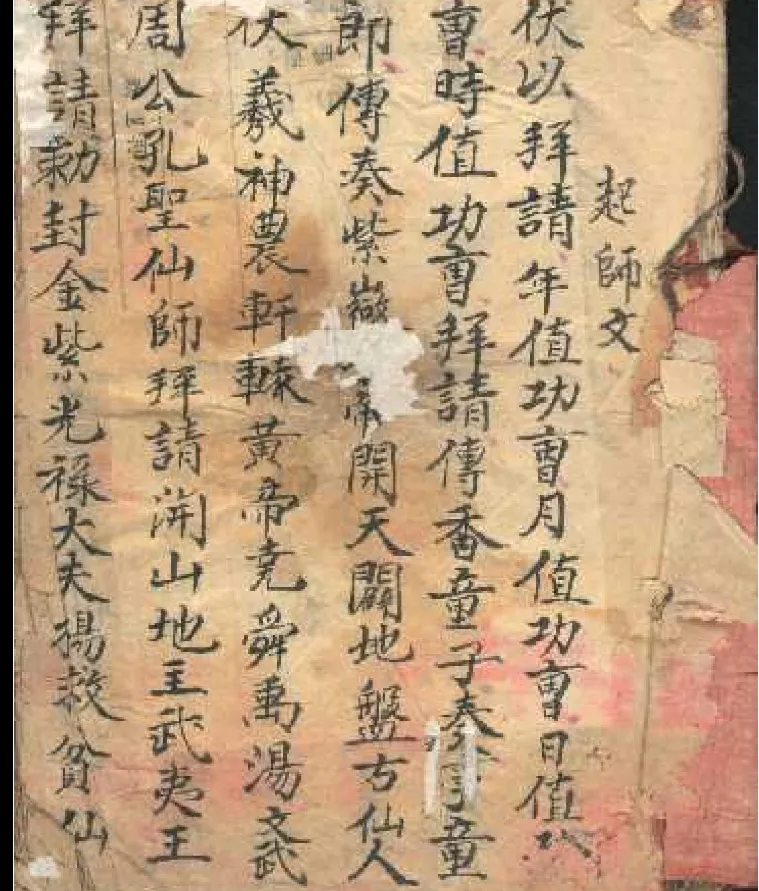 起師文
伏以拜請年值功曹月值功曹日值功
曹時值功曹拜請傳香童子奏童
郎傳奏紫微帝開天闢地盤古仙人
伏羲神農軒轅黃帝堯舜禹湯文武
周公孔聖仙師拜請開山地主武夷王
拜請勅封金紫光祿大夫楊救貧仙